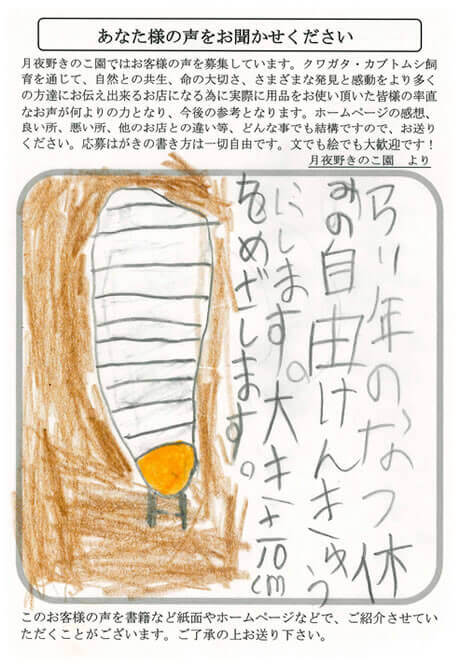 あなた様の声をお聞かせください
月夜野きのこ園ではお客様の声を募集しています。クワガタ・カブトムシ飼
育を通じて、自然との共生、命の大切さ、さまざまな発見と感動をより多く
の方達にお伝え出来るお店になる為に実際に用品をお使い頂いた皆様の率直
なお声が何よりの力となり、今後の参考となります。ホームページの感想、
良い所、悪い所、他のお店との違い等、どんな事でも結構ですので、お送り
ください。応募はがきの書き方は一切自由です。文でも絵でも大歓迎です！
月夜野きのこ園　より
らい年のなつ休
みの自由けんきゅう
にします。大きさ10cm
をめざします。
このお客様の声を書籍など紙面やホームページなどで、ご紹介させてい
ただくことがございます。ご了承の上お送り下さい。